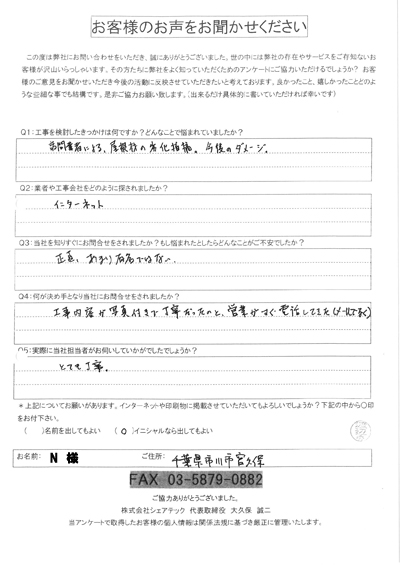 お客様のお声をお聞かせください
この度は弊社にお問い合わせをいただき、誠にありがとうございました。世の中には弊社の存在やサービスをご存知ないお
客様が沢山いらっしゃいます。その方たちに弊社をよく知っていただくためのアンケートにご協力いただけるでしょうか？お客
様のご意見をお聞かせいただき今後の活動に反映させていただきたいと考えております。良かったこと、嬉しかったことどの
ような些細な事でも結構です。是非ご協力お願い致します。（出来るだけ具体的に書いていただければ幸いです）
Q1：工事を検討したきっかけは何ですか？どんなことで悩まれていましたか？
訪問業者による、屋根板の劣化指摘。今後のダメージ。
Q2：業者や工事会社をどのように探されましたか？
インターネット
Q3：当社を知りすぐにお問合せをされましたか？もし悩まれたとしたらどんなことがご不安でしたか？
正直、あまり有名ではない。
Q4：何が決め手となり当社にお問合せをされましたか？
工事内容が写真付きで丁寧だったのと、営業がすぐ電話してきた（メールでなく）
Q5：実際に当社担当者がお伺いしていかがでしたでしょうか？
とても丁寧。
＊上記についてお願いがあります。インターネットや印刷物に掲載させていただいてもよろしいでしょうか？下記の中から〇印
をお付下さい。
（　）名前を出してもよい　（ 〇 ）イニシャルなら出してもよい
お名前： N 様　ご住所： 千葉県市川市宮久保
FAX 03-5879-0882
ご協力ありがとうございました。
株式会社シェアテック 代表取締役 大久保 誠二
当アンケートで取得したお客様の個人情報は関係法規に基づき厳正に管理いたします。